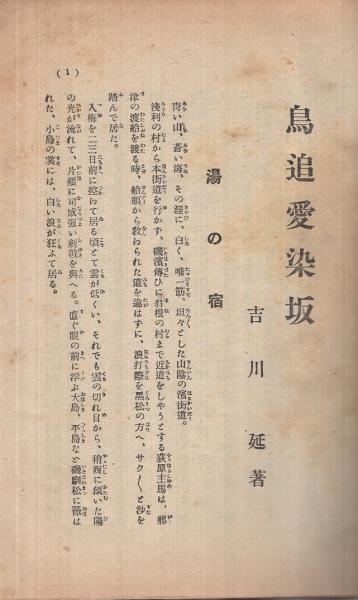 鳥追愛染坂
吉川延著
湯の宿
靑い山、蒼い海、その涯に、白く、唯一筋、坦々とした山陰の濱街道。
淺利の村から本街道を行かず、磯濱傳ひに羽根の村まで近道をしやうとする荻原主馬は、鄕
津の渡船を渡る時、船頭から敎わられた道を違はずに、浪打際を黑松の方へ、サク〱と沙を
踏んで居た。
入梅を二三日前に控わて居る頃とて雲が低くい、それでも雲の切れ目から、稍西に傾いた陽
の光が流れて、片頰に可成强い刺戟を與へる。直ぐ眼の前に浮ぶ大島、平島など磯馴松に蔽は
れた、小島の裳には、白い浪が狂ふて居る。
(1)